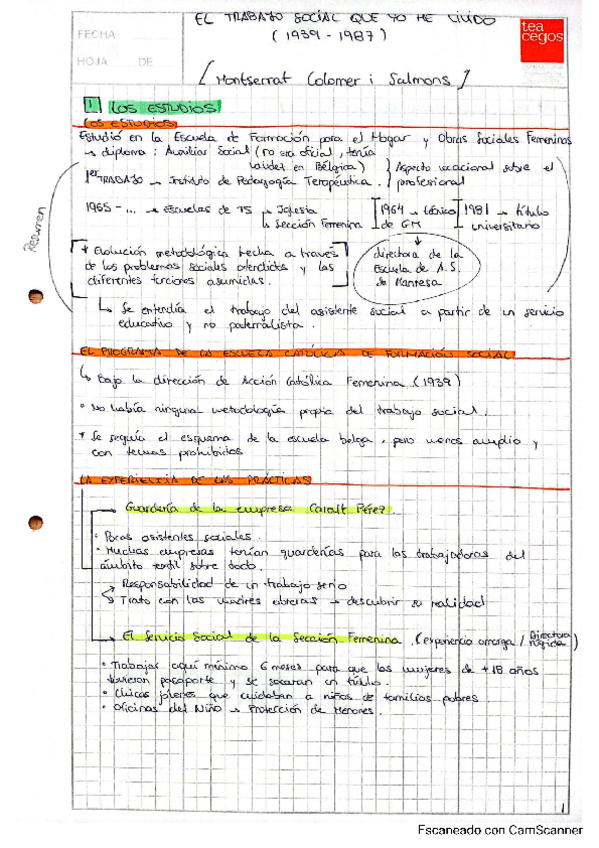 EL TRABAJO SOCIAL QUE YO HE VIVIDO
(1939 - 1987)
FECHA
HOJA DE
tea
cegos
[Montserrat Colomer i Salmons]
1 LOS ESTUDIOS
LOS ESTUDIOS
Estudió en la Escuela de Formación para el Hogar y Obras Sociales Femeninas
→ diploma: Auxiliar Social (no era oficial, tenía
validez en Bélgica)
1er TRABAJO → Instituto de Pedagogía Terapéutica.
Aspecto vocacional sobre el
profesional
1965 - ... → escuelas de TS → Iglesia
↳ Sección Femenina
[1964 → técnico
de GM]
1981 → título
universitario
Resumen
* Evolución metodológica hecha a través
de los problemas sociales atendidos y las
diferentes funciones asumidas.
directora de la
Escuela de A.S.
de Manresa
↳ Se entendía el trabajo del asistente social a partir de un servicio
educativo y no paternalista.
EL PROGRAMA DE LA ESCUELA CATÓLICA DE FORMACIÓN SOCIAL
↳ Bajo la dirección de Acción Católica Femenina (1939)
• No había ninguna metodología propia del trabajo social.
* Se seguía el esquema de la escuela belga, pero menos amplio y
con temas prohibidos
LA EXPERIENCIA DE LAS PRÁCTICAS
Guardería de la empresa Caralt Pérez.
• Pocas asistentes sociales.
• Muchas empresas tenían guarderías para las trabajadoras del
ámbito textil sobre todo.
Responsabilidad de un trabajo serio
Trato con las madres obreras → descubrir su realidad
El Servicio Social de la Sección Femenina. (experiencia amarga / Directora
rígida)
• Trabajar aquí mínimo 6 meses para que las mujeres de +18 años
tuvieran pasaporte y se sacaran un título.
• Chicas jóvenes que cuidaban a niños de familias pobres.
• Oficinas del Niño → Protección de Menores.
1
Escaneado con CamScanner